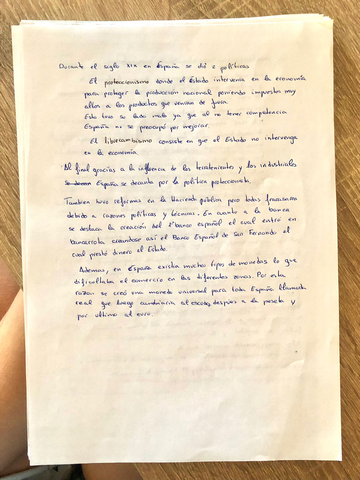 Durante el siglo XIX en España se dió 2 políticas
El proteccionismo donde el Estado intervenía en la economía
para proteger la producción nacional poniendo impuestos muy
altos a los productos que venían de fuera.
Esto tuvo su lado malo ya que al no tener competencia
España no se preocupó por mejorar.
El librecambismo consiste en que el Estado no intervenga
en la economía.
Al final gracias a la influencia de los terratenientes y los industriales
España se decanta por la política proteccionista.
También tuvo reformas en la Hacienda pública pero todas fracasaron
debido a razones políticas y técnicas. En cuanto a la banca
se destaca la creación del banco español el cual entró en
bancarrota creandose así el Banco Español de San Fernando el
cual prestó dinero al Estado.
Ademas, en España existía muchos tipos de monedas lo que
dificultaba el comercio en las diferentes zonas. Por esta
razón se creó una moneda universal para toda España llamada
real que luego cambiaría al escudo, después a la peseta y
por ultimo al euro.